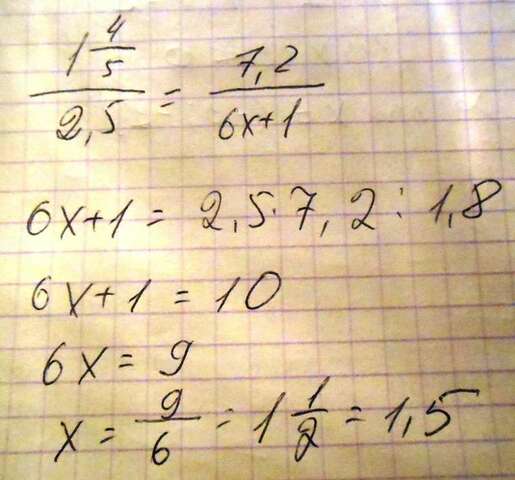 1 4/5 / 2,5 = 7,2 / 6x+1
6x+1 = 2,5·7,2 : 1,8
6x+1 = 10
6x = 9
x = 9/6 = 1 1/2 = 1,5